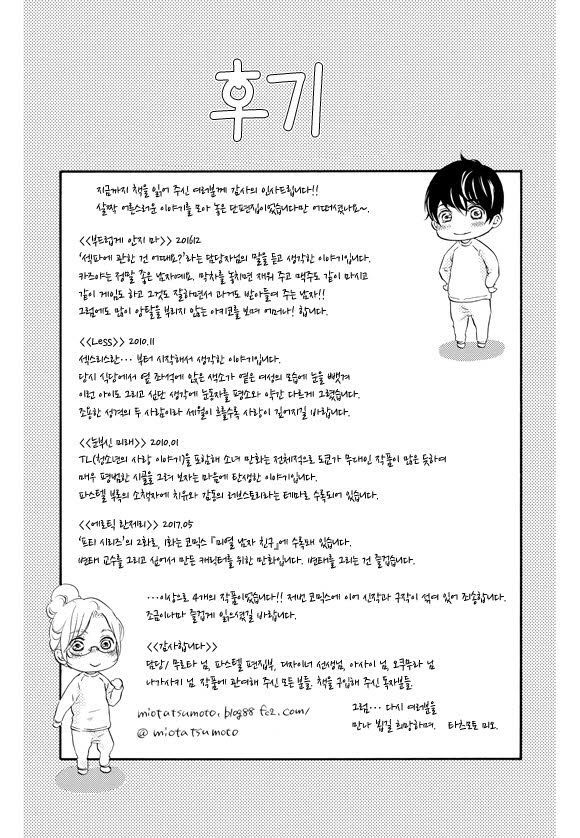 후기
지금까지 책을 읽어 주신 여러분께 감사의 인사드립니다!!
살짝 어른스러운 이야기를 모아 놓은 단편집이었습니다만 어떠셨나요~.
<<부드럽게 안지 마>> 201612
'섹파에 관한 건 어때요?'라는 담당자님의 말을 듣고 생각한 이야기입니다.
카즈야는 정말 좋은 남자예요. 막차를 놓치면 재워 주고 맥주도 같이 마시고
같이 게임도 하고 그것도 잘하면서 과거도 받아들여 주는 남자!!
그럼에도 많이 앙탈을 부리지 않는 아키코를 보며 어머나! 합니다.
<<Less>> 2010.11
섹스리스란… 부터 시작해서 생각한 이야기입니다.
당시 식당에서 옆 좌석에 앉은 색소가 옅은 여성의 모습에 눈을 뺏겨
이런 아이도 그리고 싶단 생각에 눈동자를 평소와 약간 다르게 그렸습니다.
조용한 성격의 두 사람이라 세월이 흐를수록 사랑이 깊어지길 바랍니다.
<<눈부신 미래>> 2010.01
TL(청소년의 사랑 이야기)을 포함해 소녀 만화는 전체적으로 도쿄가 무대인 작품이 많은 듯하여
매우 평범한 시골을 그려 보자는 마음에 탄생한 이야기입니다.
파스텔 부록의 소책자에 치유와 감동의 러브스토리라는 테마로 수록되어 있습니다.
<<에로틱 란제리>> 2017.05
'프티 시리즈'의 2화로, 1화는 코믹스 『미열 남자 친구』에 수록돼 있습니다.
변태 교수를 그리고 싶어서 만든 캐릭터를 위한 만화입니다. 변태를 그리는 건 즐겁습니다.
…이상으로 4개의 작품이었습니다!! 저번 코믹스에 이어 신작과 구작이 섞여 있어 죄송합니다.
조금이나마 즐겁게 읽으셨길 바랍니다.
<<감사합니다>>
담당/ 무로타 님, 파스텔 편집부, 디자이너 선생님, 아사이 님, 오쿠무라 님
나가사키 님 작품에 관여해 주신 모든 분들. 책을 구입해 주신 독자분들
그럼… 다시 여러분을
만나 뵙길 희망하며. 타츠모토 미오.
miotatsumoto.blog88 fc2.com/
@miotatsumoto